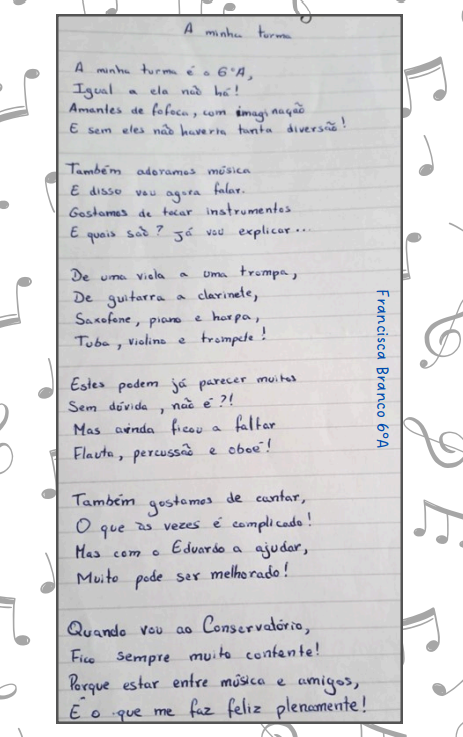 A minha turma
A minha turma é o 6ºA,
Igual a ela não há!
Amantes de fofoca, com imaginação
E sem eles não haveria tanta diversão!
Também adoramos música
E disso vou agora falar.
Gostamos de tocar instrumentos
E quais são? Já vou explicar...
De uma viola a uma trompa,
De guitarra a clarinete,
Saxofone, piano e harpa,
Tuba, violino e trompete!
Estes podem já parecer muitos
Sem dúvida, não é?!
Mas ainda ficou a faltar
Flauta, percussão e oboé!
Também gostamos de cantar,
O que às vezes é complicado!
Mas com o Eduardo a ajudar,
Muito pode ser melhorado!
Quando vou ao Conservatório,
Fico sempre muito contente!
Porque estar entre música e amigos,
É o que me faz feliz plenamente!
Francisca Branco 6ºA